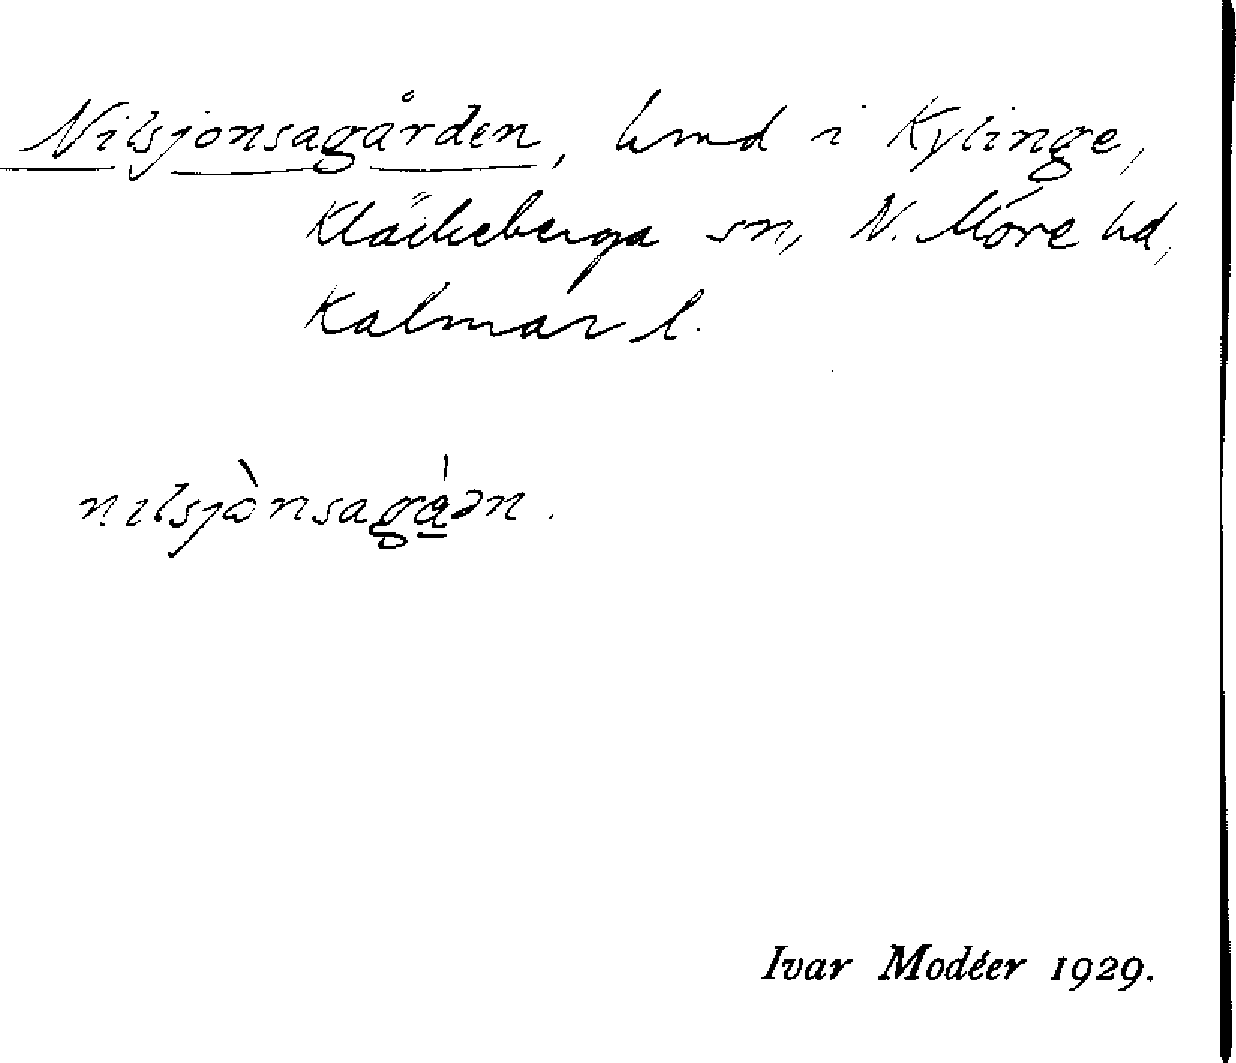 Nilsjonsagården, hmd i Kylinge,
Kläckeberga sn, N. Möre hd,
Kalmar l.
nilsjònsagá̱ən.
Ivar Modéer 1929.